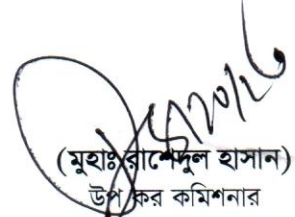 (মুহাঃ রাশেদুল হাসান)
উপ কর কমিশনার